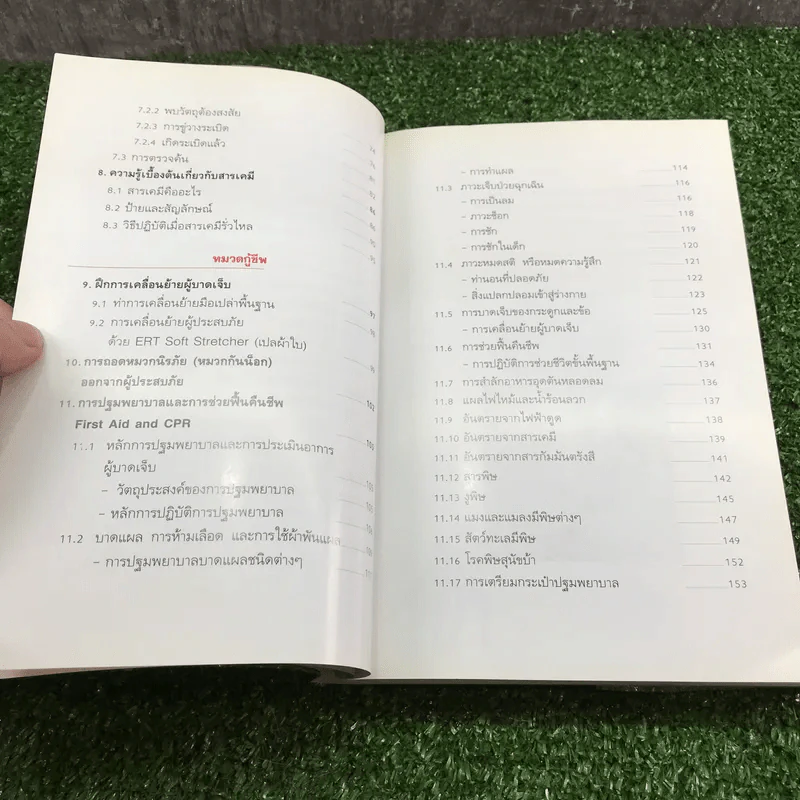 7.2.2 พบวัตถุต้องสงสัย
7.2.3 การขู่วางระเบิด
7.2.4 เกิดระเบิดแล้ว
7.3 การตรวจค้น
8. ความรู้เบื้องต้นเกี่ยวกับสารเคมี
8.1 สารเคมีคืออะไร
8.2 ป้ายและสัญลักษณ์
8.3 วิธีปฏิบัติเมื่อสารเคมีรั่วไหล
หมวดกู้ชีพ
9. ฝึกการเคลื่อนย้ายผู้บาดเจ็บ
9.1 ท่าการเคลื่อนย้ายมือเปล่าพื้นฐาน
9.2 การเคลื่อนย้ายผู้ประสบภัย
ด้วย ERT Soft Stretcher (เปลผ้าใบ)
10. การถอดหมวกนิรภัย (หมวกกันน็อก)
ออกจากผู้ประสบภัย
11. การปฐมพยาบาลและการช่วยฟื้นคืนชีพ
First Aid and CPR
11.1 หลักการปฐมพยาบาลและการประเมินอาการ
ผู้บาดเจ็บ
- วัตถุประสงค์ของการปฐมพยาบาล
- หลักการปฏิบัติการปฐมพยาบาล
11.2 บาดแผล การห้ามเลือด และการใช้ผ้าพันแผล
- การปฐมพยาบาลบาดแผลชนิดต่างๆ
- การทำแผล 114
11.3 ภาวะเจ็บป่วยฉุกเฉิน 116
- การเป็นลม 116
- ภาวะช็อก 118
- การชัก 119
- การชักในเด็ก 120
11.4 ภาวะหมดสติ หรือหมดความรู้สึก 121
- ท่านอนที่ปลอดภัย 122
- สิ่งแปลกปลอมเข้าสู่ร่างกาย 123
11.5 การบาดเจ็บของกระดูกและข้อ 125
- การเคลื่อนย้ายผู้บาดเจ็บ 130
11.6 การช่วยฟื้นคืนชีพ 131
- การปฏิบัติการช่วยชีวิตขั้นพื้นฐาน 134
11.7 การสำลักอาหารอุดตันหลอดลม 136
11.8 แผลไฟไหม้และน้ำร้อนลวก 137
11.9 อันตรายจากไฟฟ้าดูด 138
11.10 อันตรายจากสารเคมี 139
11.11 อันตรายจากสารกัมมันตรังสี 141
11.12 สารพิษ 142
11.13 งูพิษ 145
11.14 แมงและแมลงมีพิษต่างๆ 147
11.15 สัตว์ทะเลมีพิษ 149
11.16 โรคพิษสุนัขบ้า 152
11.17 การเตรียมกระเป๋าปฐมพยาบาล 153